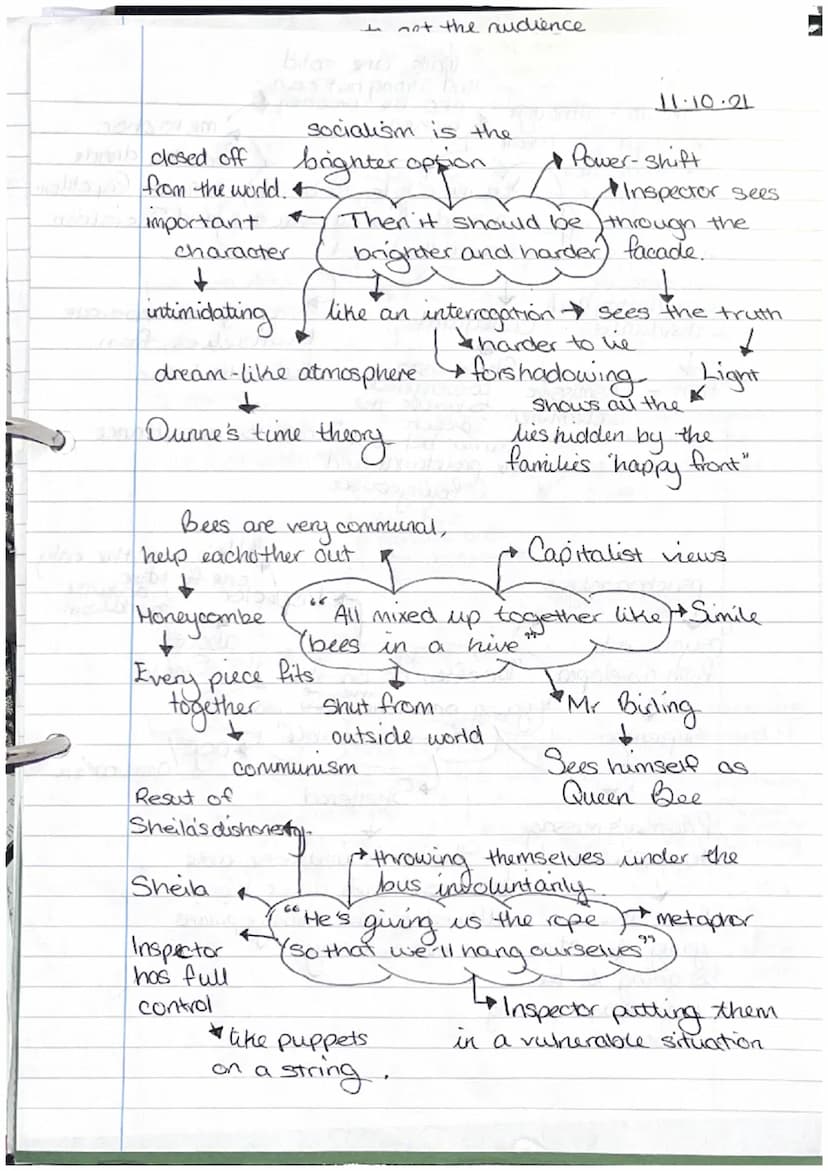 not the audience
11.10.21
socialism is the
brighter option
closed off
from the world.
Power-shift
Inspector sees
through the
facade.
important
character
Then it should be
brighter and harder
intimidating
like an interrogation → sees the truth
harder to lie
forshadowing
dream-like atmosphere
Dunne's time theory
Light
shows all the
lies hidden by the
families "happy front"
Bees are very communal,
help eachother out
Capitalist views
Honeycombe
"All mixed up together like
bees in a hive"
Simile
Every piece fits
together
communism
shut from
outside world
Mr Birling
Sees himself as
Queen Bee
Resut of
Sheila's dishonesty.
throwing themselves under the
bus involuntarily.
Sheila
"He's giving us the rope
so that we'll hang ourselves"
metaphor
Inspector
has full
control
like puppets
on a string.
Inspector putting them
in a vulnerable situation